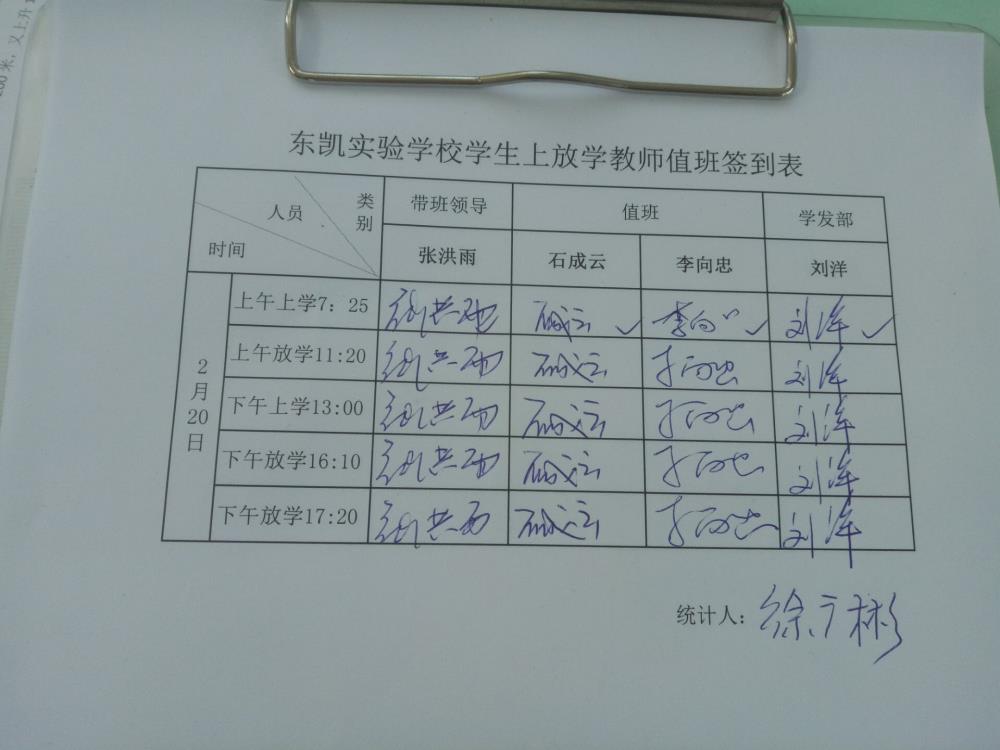 200米，又上升1
东凯实验学校学生上放学教师值班签到表
人员 类别 带班领导 值班 学发部
时间 张洪雨 石成云 李向忠 刘洋
2月20日
上午上学7：25 张洪雨 石成云 ✓ 李向忠 ✓ 刘洋 ✓
上午放学11:20 张洪雨 石成云 李向忠 刘洋
下午上学13:00 张洪雨 石成云 李向忠 刘洋
下午放学16:10 张洪雨 石成云 李向忠 刘洋
下午放学17:20 张洪雨 石成云 李向忠 刘洋
统计人：徐广彬